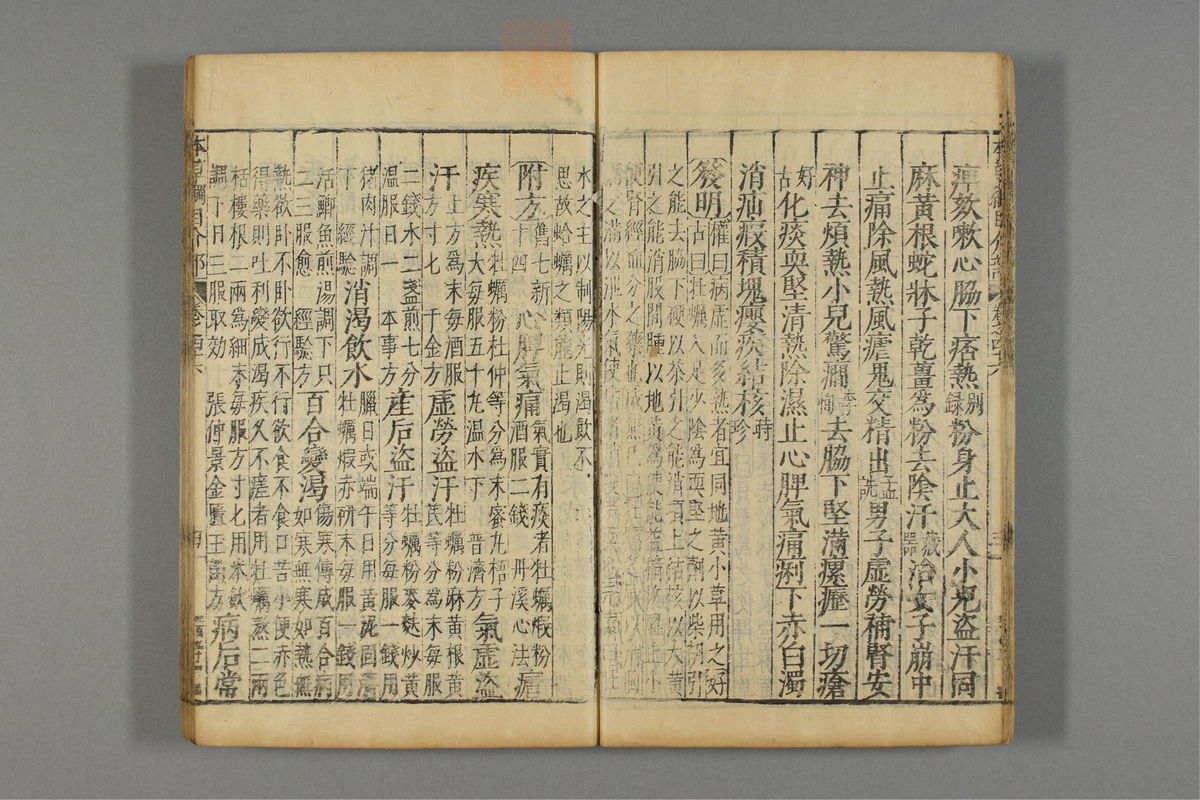 痺欬嗽心脇下痞熱別錄粉身止大人小兒盜汗同
麻黃根蛇牀子乾薑爲粉去陰汗藏器治女子崩中
止痛除風熱風瘧鬼交精出孟詵男子虛勞補腎安
神去煩熱小兒驚癎李珣去脇下堅滿瘰癧一切瘡
好古化痰耎堅清熱除濕止心脾氣痛痢下赤白濁
消疝瘕積塊癭疾結核時珍
發明權曰病虛而多熱者宜同地黃小草用之好
古曰牡蠣入足少陰爲耎堅之劑以柴胡引
之能去脇下硬以茶引之能消項上結核以大黃
引之能消股間腫以地黃爲使能益精收澁止小
便腎經血分之藥也成無己曰牡蠣
之滿以泄水氣使
水之主以制陽光則渴飲不
思故蛤蠣之類能止渴也
附方舊七新十四 心脾氣痛氣實有痰者牡蠣煅粉酒服二錢 丹溪心法 瘧
疾寒熱牡蠣粉杜仲等分爲末蜜丸梧子大每服五十丸溫水下 普濟方 氣虛盜
汗上方爲末每酒服方寸匕 千金方 虛勞盜汗牡蠣粉麻黃根黃芪等分爲末每服
二錢水二盞煎七分溫服日一 本事方 產后盜汗牡蠣粉麥麩炒黃等分每服一錢用
猪肉汁調下 經驗 消渴飲水臘日或端午日用黃泥固濟牡蠣煅赤研末每服一錢用
活鯽魚煎湯調下只二三服愈 經驗方 百合變渴傷寒傳成百合病如寒無寒如熱無
熱欲臥不臥欲行不行欲食不食口苦小便赤色
得藥則吐利變成渴疾久不瘥者用牡蠣熬二兩
栝樓根二兩爲細末每服方寸匕用米飲
調下日三服取効 張仲景金匱玉函方 病后常
本草綱目介部 卷之四十六